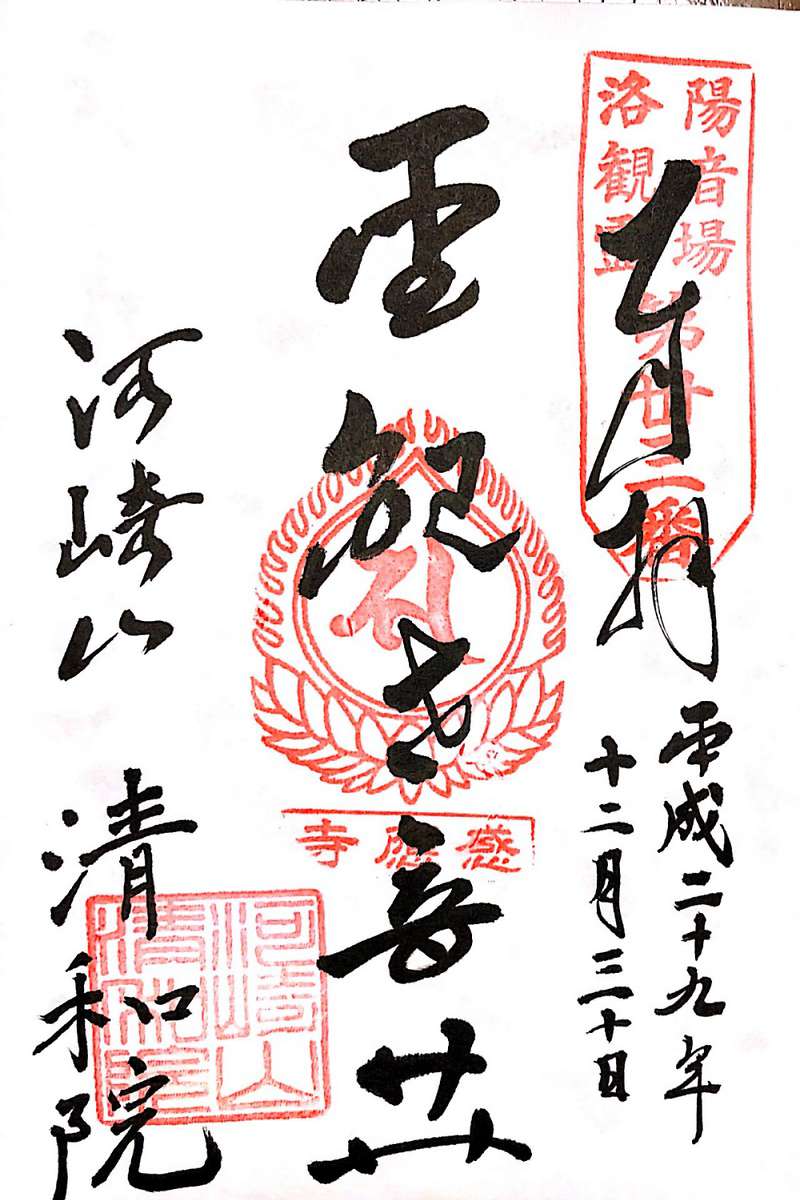 洛陽
観音
霊場
第卅三番
奉拝
平成二十九年
十二月三十日
聖観世音𦬇
感應寺
河崎山 清和院
河崎山
清和院